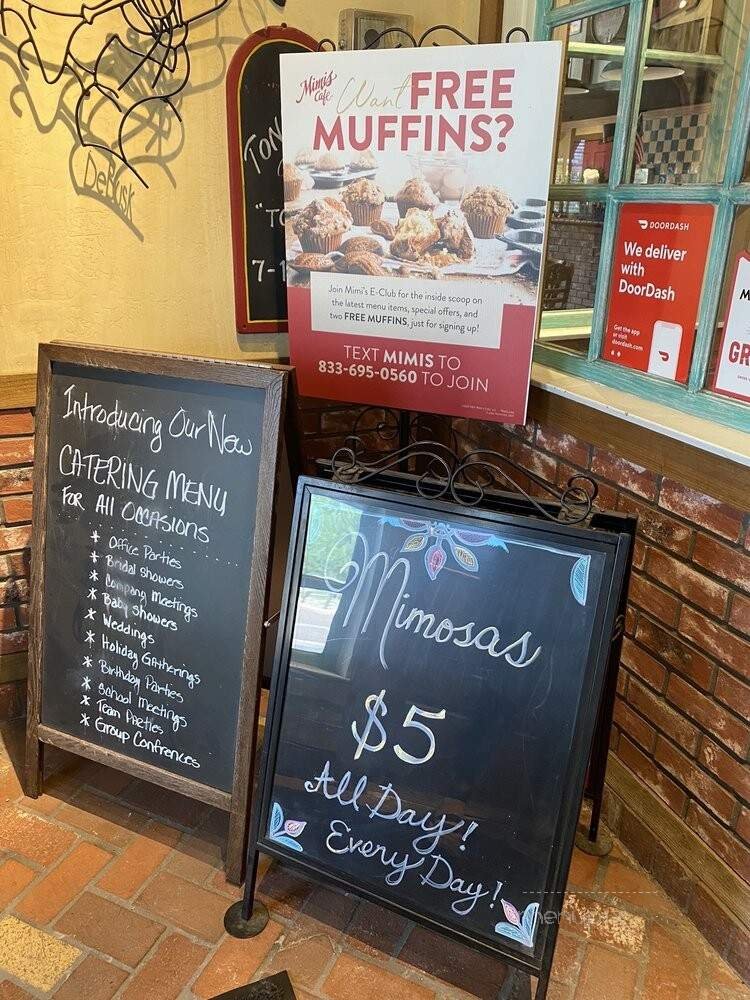 Mimi's
Cafe
Want FREE
MUFFINS?
Join Mimi's E-Club for the inside scoop on
the latest menu items, special offers, and
two FREE MUFFINS, just for signing up!
TEXT MIMIS TO
833-695-0560 TO JOIN
DeBusk
TON
"T
7-1
DOORDASH
We deliver
with
DoorDash
Get the app
or visit
doordash.com
M
GR
Introducing Our New
CATERING MENU
FOR All OCCASIONS
* Office Parties
* Bridal Showers
* Company Meetings
* Baby Showers
* Weddings
* Holiday Gatherings
* Birthday Parties
* School Meetings
* Team Parties
* Group Confrences
Mimosas
$5
All Day!
Every Day!